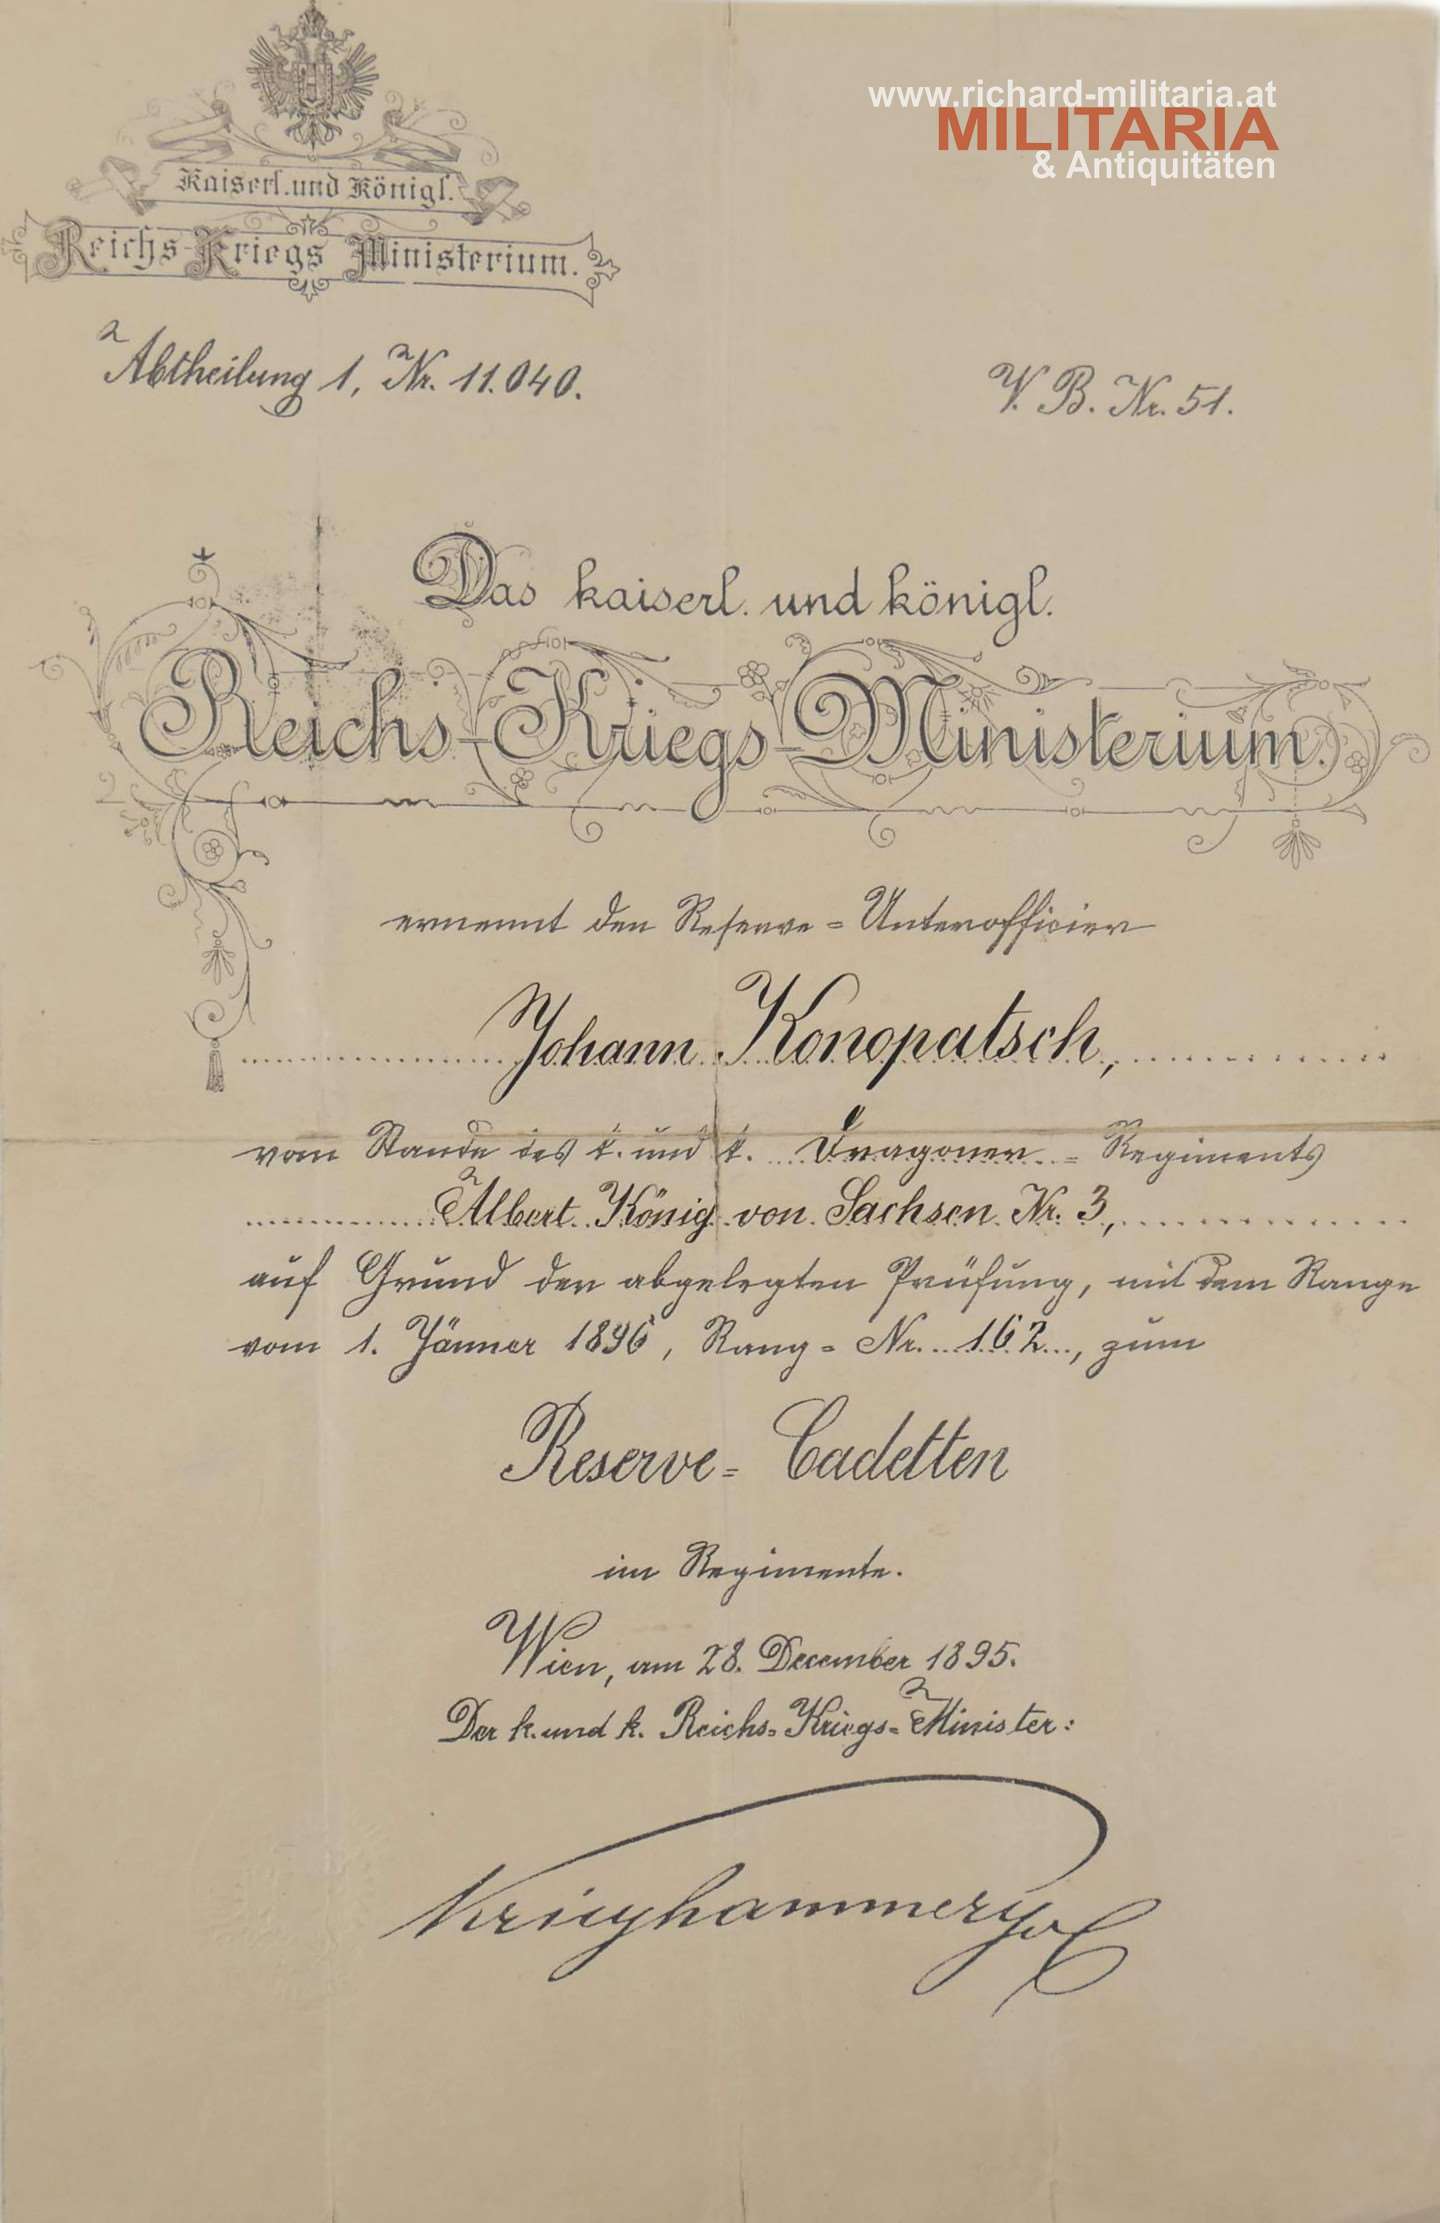 www.richard-militaria.at
MILITARIA
& Antiquitäten
Kaiserl. und Königl.
Reichs-Kriegs Ministerium.
Abtheilung 1, Nr. 11.040.
V. B. Nr. 51.
Das kaiserl. und königl.
Reichs-Kriegs-Ministerium.
ernennt den Reserve-Unterofficier
Johann Konopatsch,
vom Stande des k. und k. Dragoner-Regiments
Albert König von Sachsen Nr. 3,
auf Grund der abgelegten Prüfung, mit dem Range
vom 1. Jänner 1896, Rang-Nr. 162, zum
Reserve-Cadetten
im Regimente.
Wien, am 28. December 1895.
Der k. und k. Reichs-Kriegs-Minister:
Krieghammer